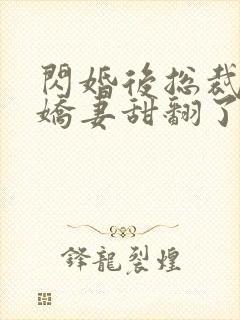 閃婚後总裁
嬌妻甜翻了
鋒龍裂煌